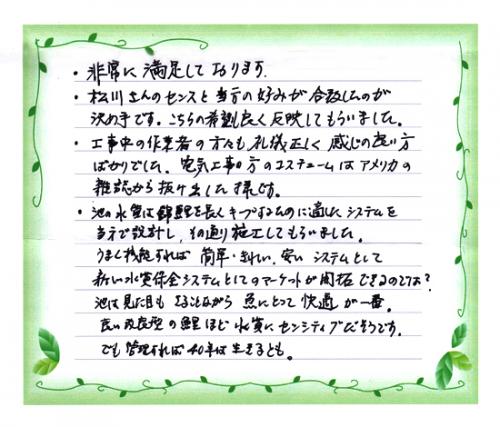 ・非常に満足しております。
・松川さんのセンスと当方の好みが合致したのが
決め手です。こちらの希望良く反映してもらいました。
・工事中の作業者の方たちも礼儀正しく感じの良い方
ばかりでした。電気工事の方のコスチュームはアメリカの
雑誌から抜け出した様です。
・池の水質は錦鯉を長くキープするのに適したシステムを
当方で設計し、その通り施工してもらいました。
うまく機能すれば簡単・きれい、安いシステムとして
新しい水質保全システムとしてのマーケットが開拓できるのでは?
池は見た目もさることながら魚にとって快適が一番。
良い改良型の鯉ほど水質にセンシティブだそうです。
でも管理すれば40年は生きるとも。